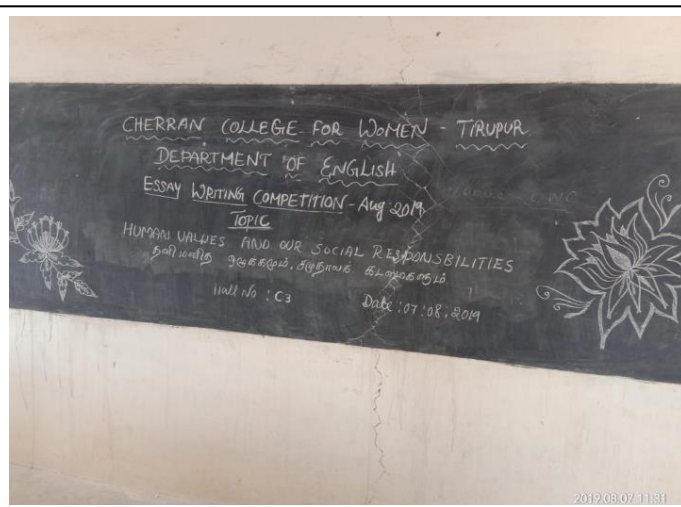 CHERRAN COLLEGE FOR WOMEN - TIRUPUR
DEPARTMENT OF ENGLISH
ESSAY WRITING COMPETITION - Aug 2019
TOPIC
HUMAN VALUES AND OUR SOCIAL RESPONSBILITIES
தனிமனித ஒழுக்கமும், சமுதாயக் கடமைகளும்
Hall No : C3 Date : 07:08.2019
2019.08.07 11:31